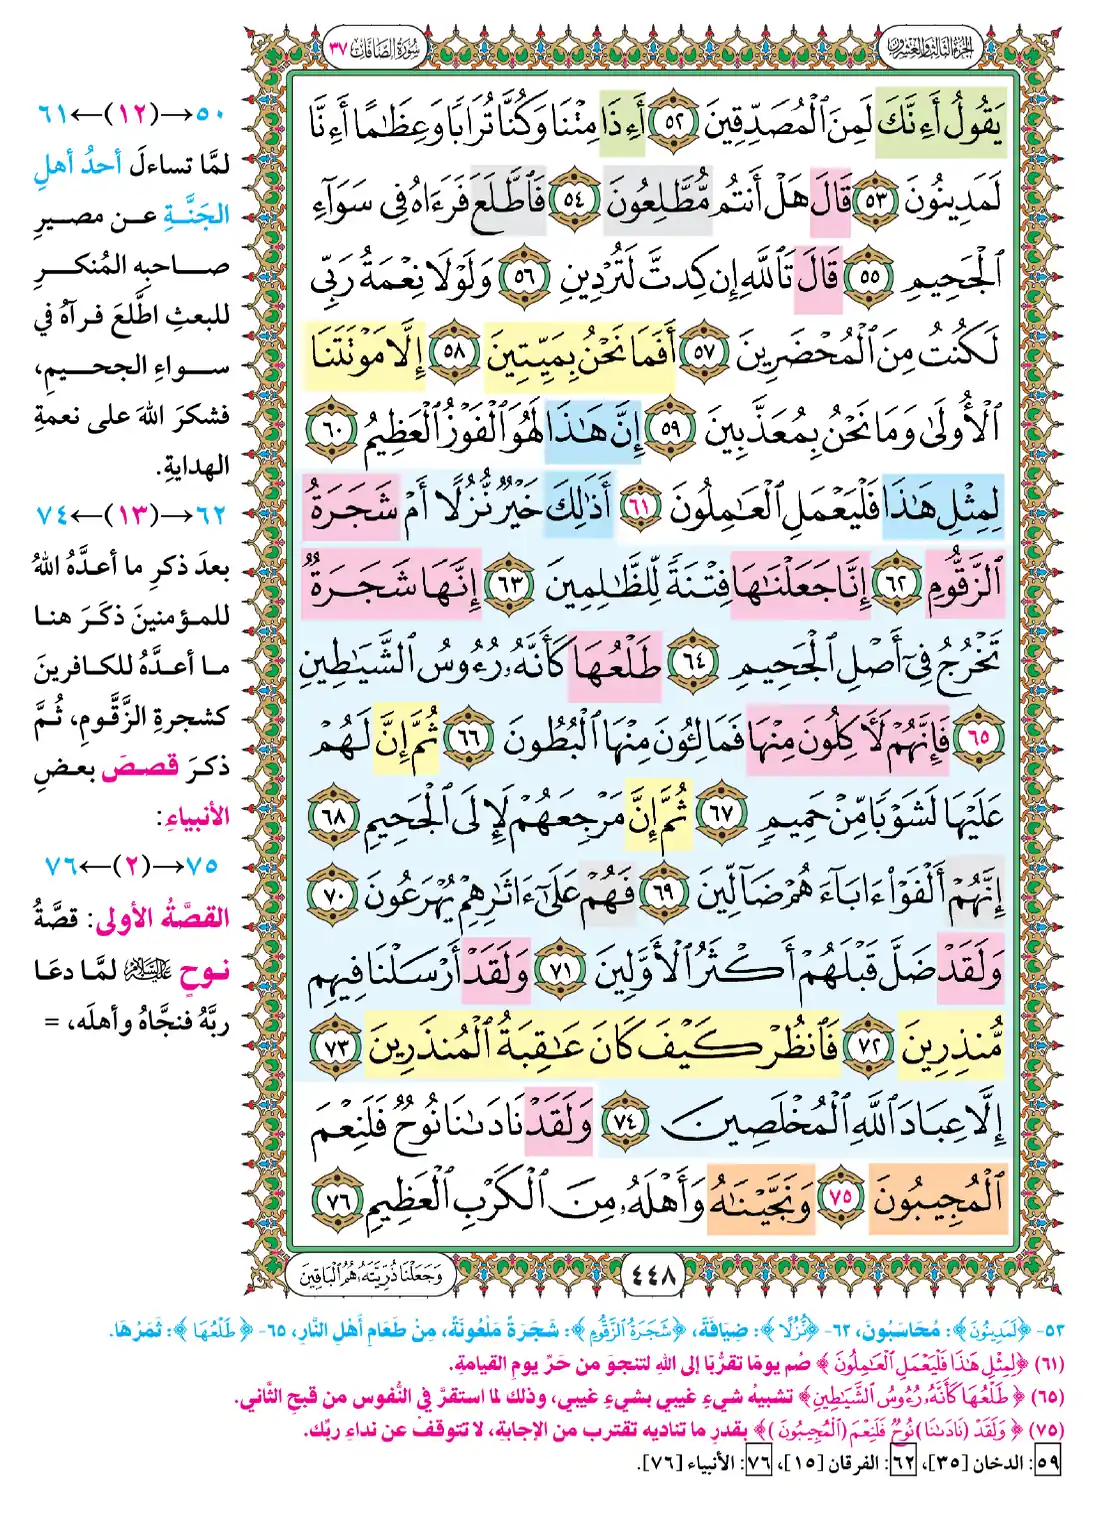 الجزء الثالث والعشرون
سورة الصافات ٣٧
يَقُولُ أَءِنَّكَ لَمِنَ ٱلْمُصَدِّقِينَ ٥٢ أَءِذَا مِتْنَا وَكُنَّا تُرَابًا وَعِظَٰمًا أَءِنَّا
لَمَدِينُونَ ٥٣ قَالَ هَلْ أَنتُم مُّطَّلِعُونَ ٥٤ فَٱطَّلَعَ فَرَءَاهُ فِى سَوَآءِ
ٱلْجَحِيمِ ٥٥ قَالَ تَٱللَّهِ إِن كِدتَّ لَتُرْدِينِ ٥٦ وَلَوْلَا نِعْمَةُ رَبِّى
لَكُنتُ مِنَ ٱلْمُحْضَرِينَ ٥٧ أَفَمَا نَحْنُ بِمَيِّتِينَ ٥٨ إِلَّا مَوْتَتَنَا
ٱلْأُولَىٰ وَمَا نَحْنُ بِمُعَذَّبِينَ ٥٩ إِنَّ هَٰذَا لَهُوَ ٱلْفَوْزُ ٱلْعَظِيمُ ٦٠
لِمِثْلِ هَٰذَا فَلْيَعْمَلِ ٱلْعَٰمِلُونَ ٦١ أَذَٰلِكَ خَيْرٌ نُّزُلًا أَمْ شَجَرَةُ
ٱلزَّقُّومِ ٦٢ إِنَّا جَعَلْنَٰهَا فِتْنَةً لِّلظَّٰلِمِينَ ٦٣ إِنَّهَا شَجَرَةٌ
تَخْرُجُ فِىٓ أَصْلِ ٱلْجَحِيمِ ٦٤ طَلْعُهَا كَأَنَّهُۥ رُءُوسُ ٱلشَّيَٰطِينِ
٦٥ فَإِنَّهُمْ لَءَاكِلُونَ مِنْهَا فَمَالِـُٔونَ مِنْهَا ٱلْبُطُونَ ٦٦ ثُمَّ إِنَّ لَهُمْ
عَلَيْهَا لَشَوْبًا مِّنْ حَمِيمٍ ٦٧ ثُمَّ إِنَّ مَرْجِعَهُمْ لَإِلَى ٱلْجَحِيمِ ٦٨
إِنَّهُمْ أَلْفَوْا۟ ءَابَآءَهُمْ ضَآلِّينَ ٦٩ فَهُمْ عَلَىٰٓ ءَاثَٰرِهِمْ يُهْرَعُونَ ٧٠
وَلَقَدْ ضَلَّ قَبْلَهُمْ أَكْثَرُ ٱلْأَوَّلِينَ ٧١ وَلَقَدْ أَرْسَلْنَا فِيهِم
مُّنذِرِينَ ٧٢ فَٱنظُرْ كَيْفَ كَانَ عَٰقِبَةُ ٱلْمُنذَرِينَ ٧٣
إِلَّا عِبَادَ ٱللَّهِ ٱلْمُخْلَصِينَ ٧٤ وَلَقَدْ نَادَىٰنَا نُوحٌ فَلَنِعْمَ
ٱلْمُجِيبُونَ ٧٥ وَنَجَّيْنَٰهُ وَأَهْلَهُۥ مِنَ ٱلْكَرْبِ ٱلْعَظِيمِ ٧٦
٤٤٨
وَجَعَلْنَا ذُرِّيَّتَهُۥ هُمُ ٱلْبَاقِينَ
٥٠→(١٢)←٦١
لمَّا تساءلَ أحدُ أهلِ
الجَنَّةِ عن مصيرِ
صاحبِه المُنكرِ
للبعثِ اطَّلعَ فرآهُ في
سواءِ الجحيمِ،
فشكرَ اللهَ على نعمةِ
الهدايةِ.
٦٢→(١٣)←٧٤
بعدَ ذكرِ ما أعدَّهُ اللهُ
للمؤمنينَ ذكَرَ هنا
ما أعدَّهُ للكافرينَ
كشجرةِ الزَّقُّومِ، ثُمَّ
ذكرَ قصصَ بعضِ
الأنبياءِ:
٧٥→(٢)←٧٦
القصَّةُ الأولى: قصَّةُ
نوحٍ عليه السلام لمَّا دعَا
ربَّهُ فنجَّاهُ وأهلَه، =
٥٣- ﴿لَمَدِينُونَ﴾: مُحَاسَبُونَ، ٦٢- ﴿نُّزُلًا﴾: ضِيَافَةً، ﴿شَجَرَةُ ٱلزَّقُّومِ﴾: شَجَرَةٌ مَلْعُونَةٌ، مِنْ طَعَامِ أَهْلِ النَّارِ، ٦٥- ﴿طَلْعُهَا﴾: ثَمَرُهَا.
(٦١) ﴿لِمِثْلِ هَٰذَا فَلْيَعْمَلِ ٱلْعَٰمِلُونَ﴾ صُم يومًا تقرُّبًا إلى اللهِ لتنجوَ من حَرِّ يومِ القيامةِ.
(٦٥) ﴿طَلْعُهَا كَأَنَّهُۥ رُءُوسُ ٱلشَّيَٰطِينِ﴾ تشبيهُ شيءٍ غيبي بشيءٍ غيبي، وذلك لما استقرَّ في النُّفوس من قبحِ الثَّاني.
(٧٥) ﴿وَلَقَدْ (نَادَىٰنَا) نُوحٌ فَلَنِعْمَ (ٱلْمُجِيبُونَ)﴾ بقدرِ ما تناديه تقترب من الإجابةِ، لا تتوقفْ عن نداءِ ربِّك.
٥٩: الدخان [٣٥]، ٦٢: الفرقان [١٥]، ٧٦: الأنبياء [٧٦].